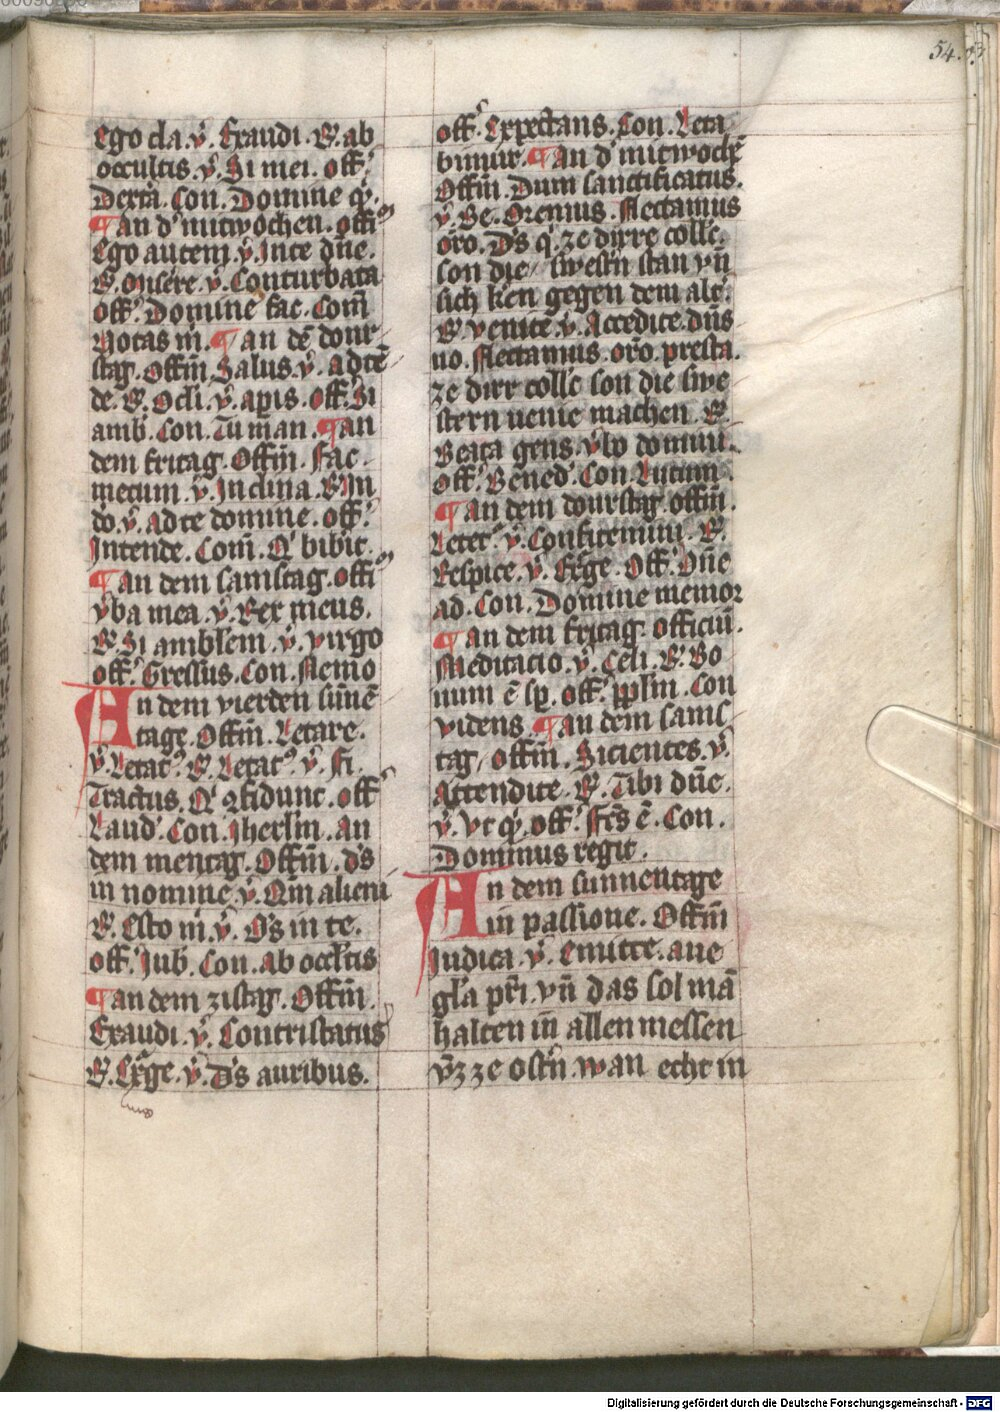 54.
Ego cla. v̉. Exaudi. R̷. ab
occultis. v̉. Si mei. off̉.
Dextã. Con. Domine q̛.
¶ an d' mitwochen. offm̃
Ego autem. v̉. In te dñe.
R̷. Misere. v̉. Conturbata
off̉. Domine fac. Com̃
Notas m̃. ¶ an dẽ donr
stag. Offm̃. Salus. v̉. adtẽ
de. R̷. Ocli. v̉. apis. off. Si
amb. Con. Tu man. ¶ an
dem fritag. Offm̃. Fac
mecum. v̉. Inclina. R̷. In
do. v̉. ad te domine. off̉.
Intende. Com̃. Q' bibit.
¶ an dem samstag. offm̃
v̉ba mea. v̉. Rex meus.
R̷. Si amblem. v̉. virgo
off̉. Gressus. Con. Nemo
An dem vierden sunẽ
tage. Offm̃. Letare.
v̉. Letat᷒. R̷. Letat᷒. v̉. Fi
Tractus. Q' ꝯfidunt. off̉
Laud'. Con. Jherlm̃. An
dem mentag. Offm̃. ds̃
in nomine. v̉. Qm̃ alieni
R̷. Esto m̃. v̉. Ds̃ in te.
off̉. Jub̉. Con. Ab occl̃tis
¶ an dem zistag. Offm̃.
Exaudi. v̉. Contristatus
R̷. Exr̃ge. v̉. Ds̃ auribus.
off̉. Expectans. Con. Leta
bimur. ¶ an d' mitwochẽ
Offm̃. Dum sanctificatus.
v̉. Be. Oremus. Flectamus
oro. Ds̃ q'. ze dirre colle.
son die swestn̉ stan vñ
sich ken gegen dem alt̉.
R̷. venite. v̉. Accedite. dñs
uo. Flectamus. oro. presta.
ze dirr colle son die swe
stern venie machen. R̷.
Beata gens. v̉bo domini.
off̉. Bened'. Con. Lutum.
¶ an dem donrstag. offm̃.
Letet᷒. v̉. Confitemini. R̷.
Respice. v̉. Exr̃ge. Off̉. Dñe
ad. Con. Domine memor
¶ an dem fritag. officiũ.
Meditacio. v̉. Celi. R̷. Bo
num ẽ sp̉. off̉. pp̉lm̃. Con
videns. ¶ an dem sams
tag. offm̃. Sicientes. v̉.
Attendite. R̷. Tibi dñe.
v̉. Vt q'. off̉. Fc̃s ẽ. Con.
Dominus regit.
An dem sunnentage
in passione. Offm̃
Judica. v̉. Emitte. ane
gl̃a pr̃i. vñ das sol mã
halten in allen messen
v̉z ze ostn̉. wan echt in
Digitalisierung gefördert durch die Deutsche Forschungsgemeinschaft - DFG